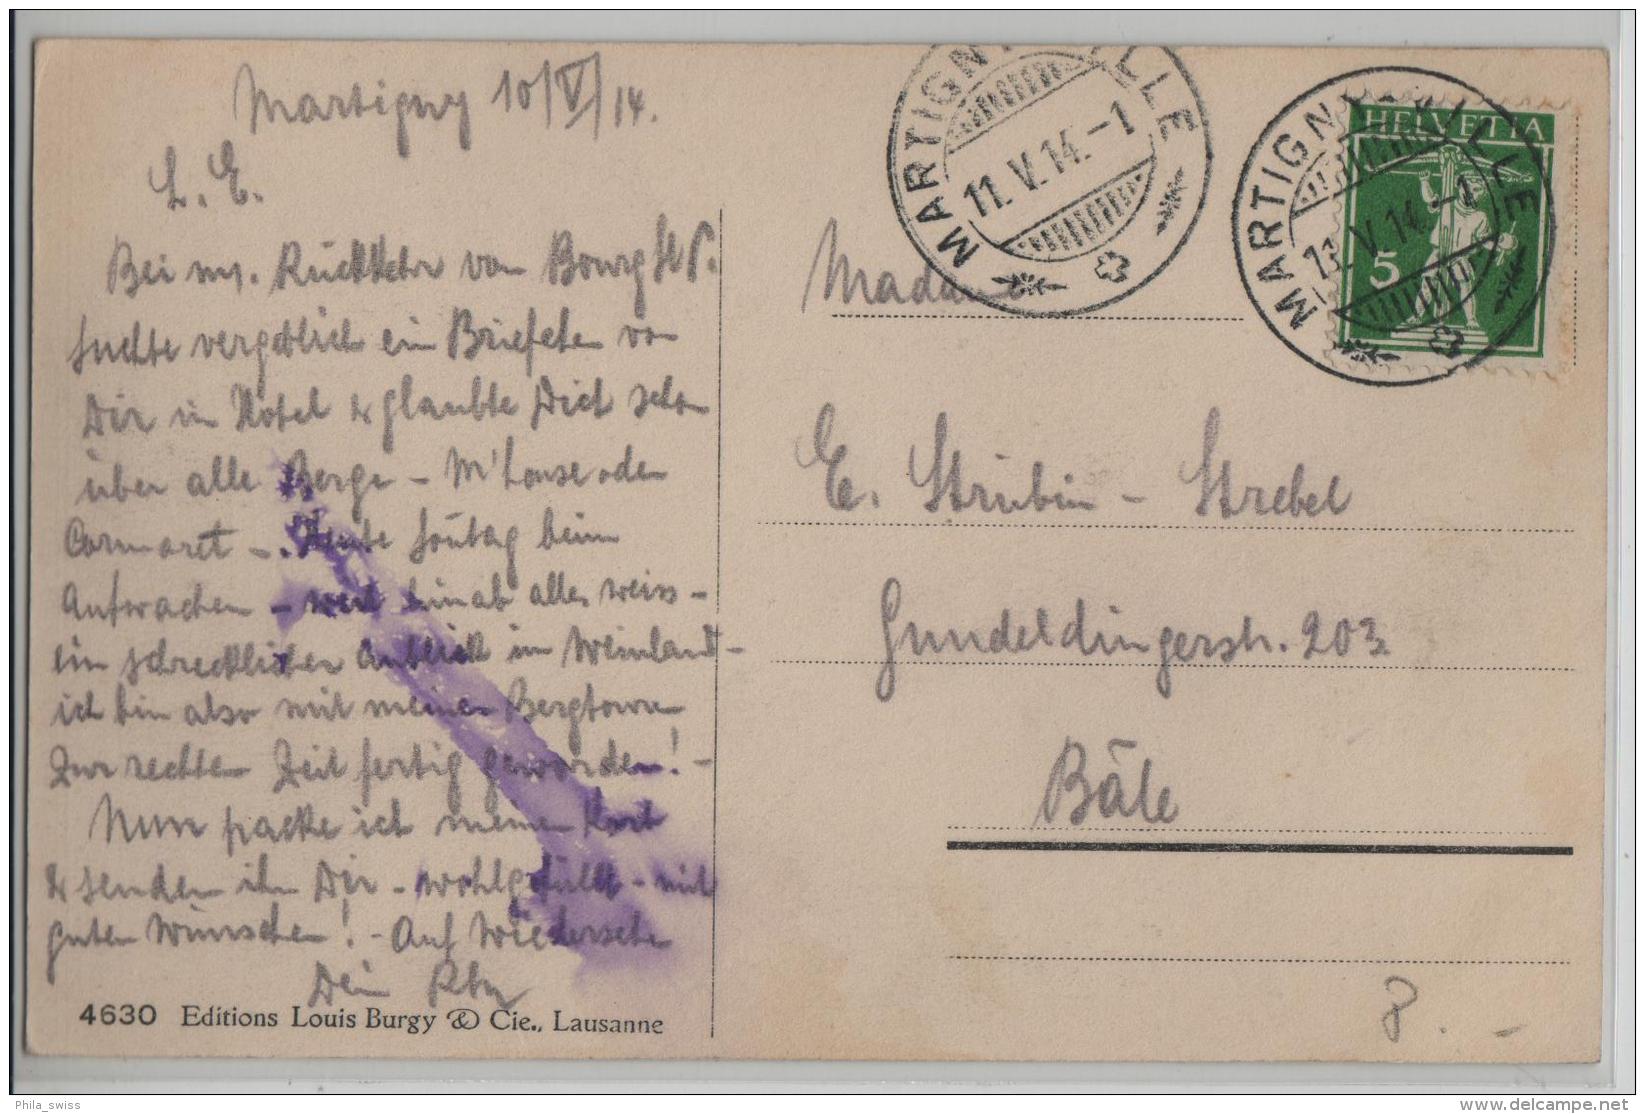 Martigny 10/V/14.
L. E.
Bei m. Rückkehr von Bourg St P.
suchte vergeblich ein Briefchen von
Dir im Hotel & glaubte Dich schon
über alle Berge - M'house oder
- Heute Sontag beim
Aufwachen - weit hinab alles weiss -
ein schrecklicher Anblick im Weinland -
ich bin also mit meinen Bergtouren
zur rechten Zeit fertig geworden! -
Nun packe ich meinen Korb
& senden ihn Dir - wohlgefüllt - mit
guten Wünschen! - Auf Wiedersehen
Dein
4630 Editions Louis Burgy & Cie., Lausanne
MARTIGNY-VILLE
11.V.14.-1
MARTIGNY-VILLE
11.V.14.-1
HELVETIA
5
Madame
E. Strübin - Strebel
Gundeldingerstr. 203
Bâle
8. -
Phila_swiss
www.delcampe.net